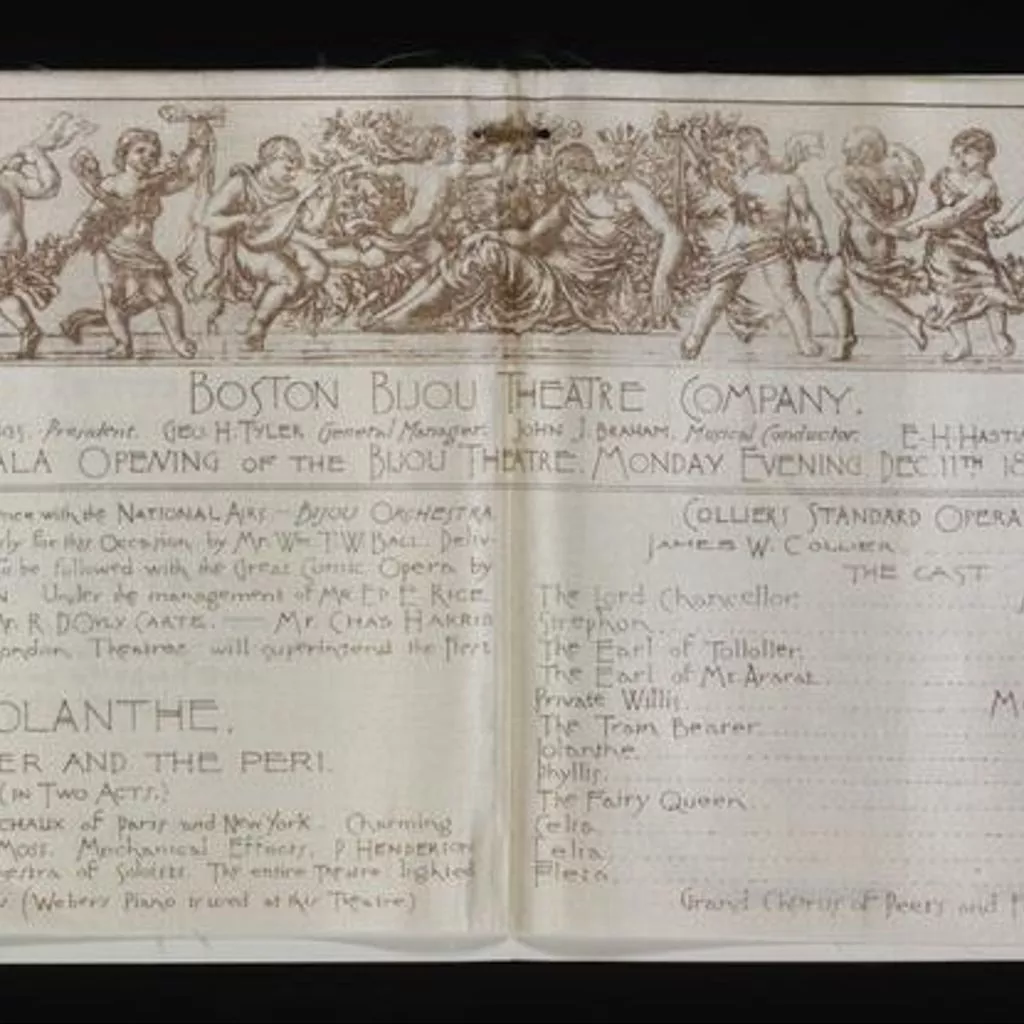 BOSTON BIJOU THEATRE COMPANY.
President. GEO. H. TYLER General Manager. JOHN J. BRAHAM, Musical Conductor. E. H. HASTI
ALA OPENING OF THE BIJOU THEATRE. MONDAY EVENING. DEC. 11TH 18
nce with the NATIONAL AIRS — BIJOU ORCHESTRA
rly for this Occasion, by Mr. Wm. T. W. BALL. Deliv-
To be followed with the Great Comic Opera by
N. Under the management of MR ED. E. RICE
Mr. R. D'OYLY CARTE. — MR. CHAS HARRIS
ondon Theatres will superintend the first
OLANTHE.
ER AND THE PERI.
(IN TWO ACTS.)
CHAUX of Paris and New York. Charming
MOSS. Mechanical Effects, P. HENDERSON
estra of Soloists. The entire Theatre lighted
(Webers Piano is used at this Theatre)
COLLIER'S STANDARD OPERA
JAMES W. COLLIER
THE CAST
The Lord Chancellor.
Strephon.
The Earl of Tolloller.
The Earl of Mt. Ararat.
Private Willis. M
The Train Bearer
Iolanthe.
Phyllis.
The Fairy Queen
Celia.
Leila.
Fleta.
Grand Chorus of Peers and F